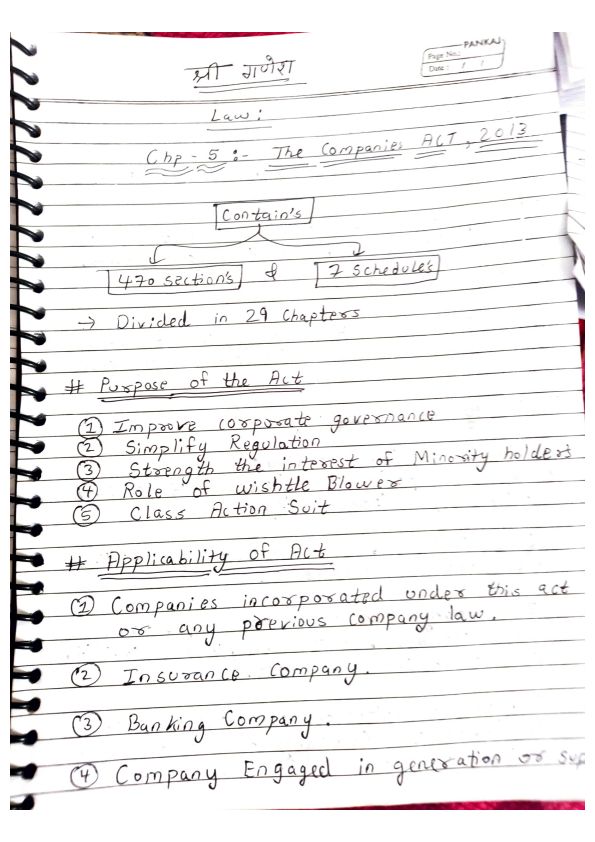 श्री गणेश
PANKAJ
Page No.:
Date: / /
Law:
Chp-5:- The Companies ACT, 2013
Contain's
470 section's & 7 schedule's
→ Divided in 29 Chapters
# Purpose of the Act
① Improve corporate governance
② Simplify Regulation
③ Strength the interest of Minority holders
④ Role of wishtle Blower
⑤ Class Action Suit
# Applicability of Act
① Companies incorporated under this act
or any previous company law.
② Insurance Company.
③ Banking Company.
④ Company Engaged in generation or sup